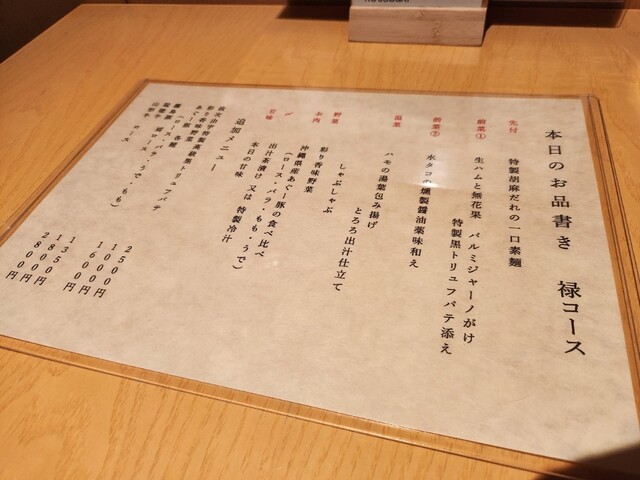 本日のお品書き 禄コース
先付
特製胡麻だれの一口素麺
前菜①
生ハムと無花果 パルミジャーノがけ
特製黒トリュフパテ添え
前菜②
水タコの燻製醤油薬味和え
温菜
ハモの湯葉包み揚げ
とろろ出汁仕立て
しゃぶしゃぶ
野菜
彩り香味野菜
お肉
沖縄県産あぐー豚の食べ比べ
(ロース・バラ・もも・うで)
〆
出汁茶漬け 又は 特製冷汁
甘味
本日の甘味
追加メニュー
特製高級黒トリュフパテ
彩り香味野菜
250円
1000円
1600円
1350円
1850円
2800円
2800円